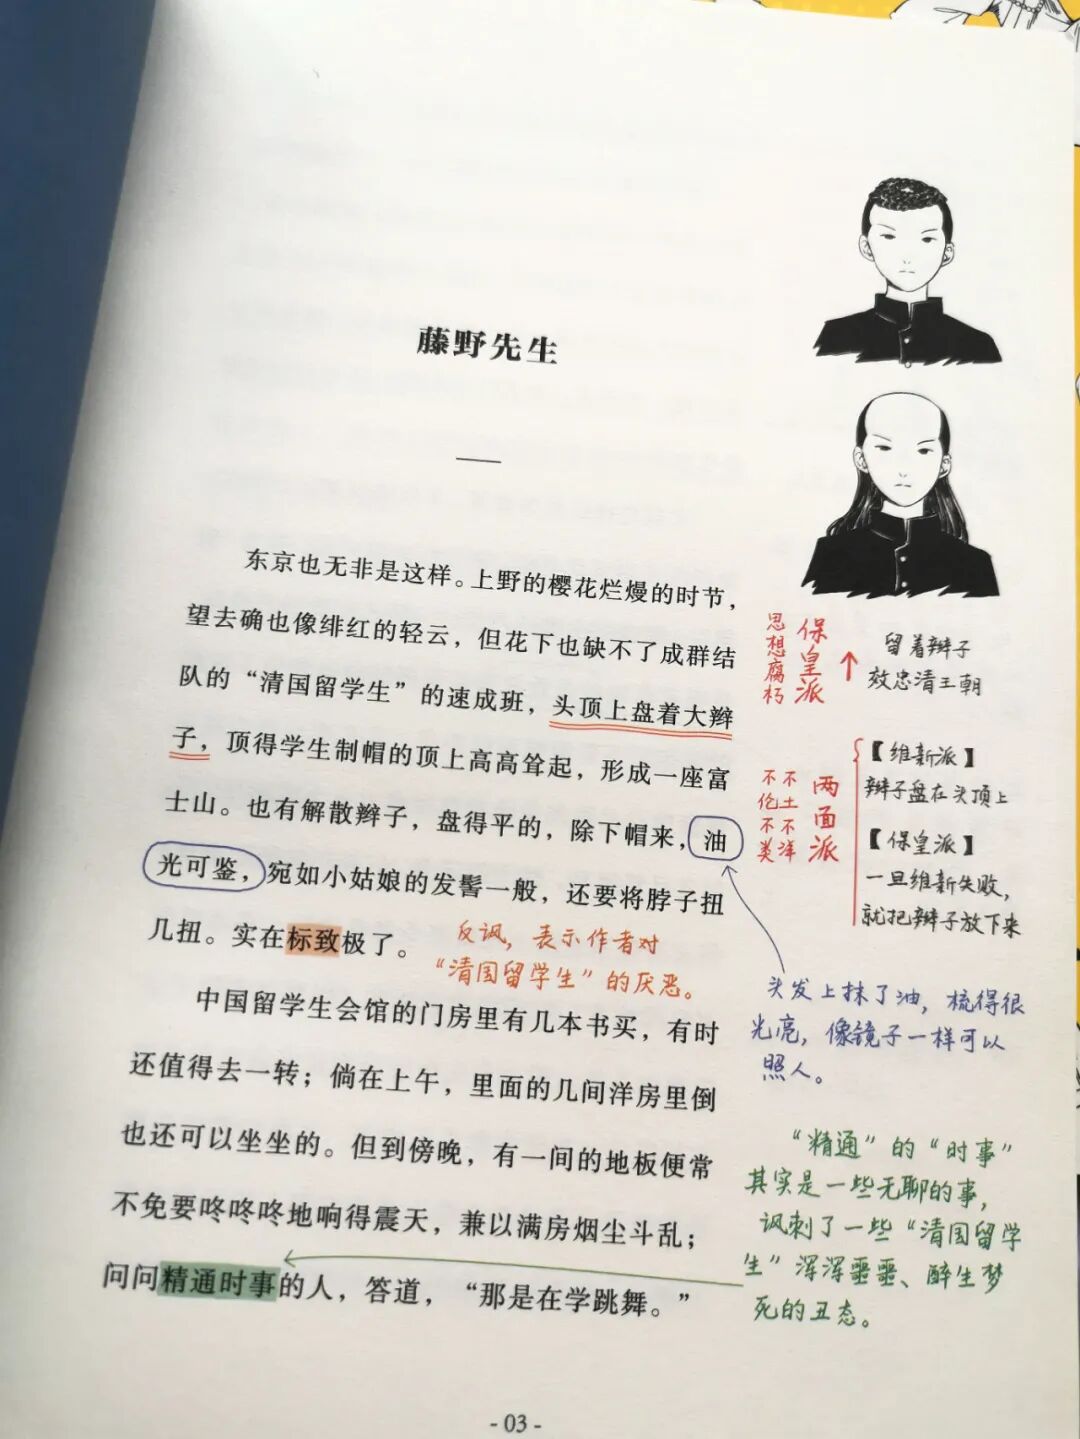 藤野先生
东京也无非是这样。上野的樱花烂熳的时节，
望去确也像绯红的轻云，但花下也缺不了成群结
队的“清国留学生”的速成班，头顶上盘着大辫
子，顶得学生制帽的顶上高高耸起，形成一座富
士山。也有解散辫子，盘得平的，除下帽来，油
光可鉴，宛如小姑娘的发髻一般，还要将脖子扭
几扭。实在标致极了。
反讽，表示作者对
“清国留学生”的厌恶。
中国留学生会馆的门房里有几本书买，有时
还值得去一转；倘在上午，里面的几间洋房里倒
也还可以坐坐的。但到傍晚，有一间的地板便常
不免要咚咚咚地响得震天，兼以满房烟尘斗乱；
问问精通时事的人，答道，“那是在学跳舞。”
保皇派
思想腐朽
留着辫子
效忠清王朝
两面派
不土不洋
不伦不类
【维新派】
辫子盘在头顶上
【保皇派】
一旦维新失败，
就把辫子放下来
头发上抹了油，梳得很
光亮，像镜子一样可以
照人。
“精通”的“时事”
其实是一些无聊的事，
讽刺了一些“清国留学
生”浑浑噩噩、醉生梦
死的丑态。
- 03 -